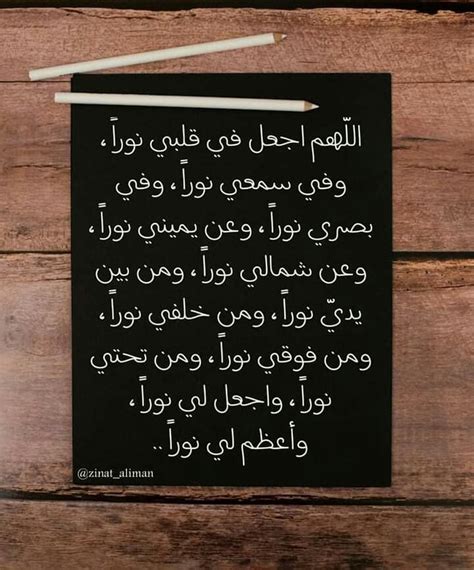 اللّهم اجعل في قلبي نوراً،
وفي سمعي نوراً، وفي
بصري نوراً، وعن يميني نوراً،
وعن شمالي نوراً، ومن بين
يديّ نوراً، ومن خلفي نوراً،
ومن فوقي نوراً، ومن تحتي
نوراً، واجعل لي نوراً،
وأعظم لي نوراً ..
@zinat_aliman